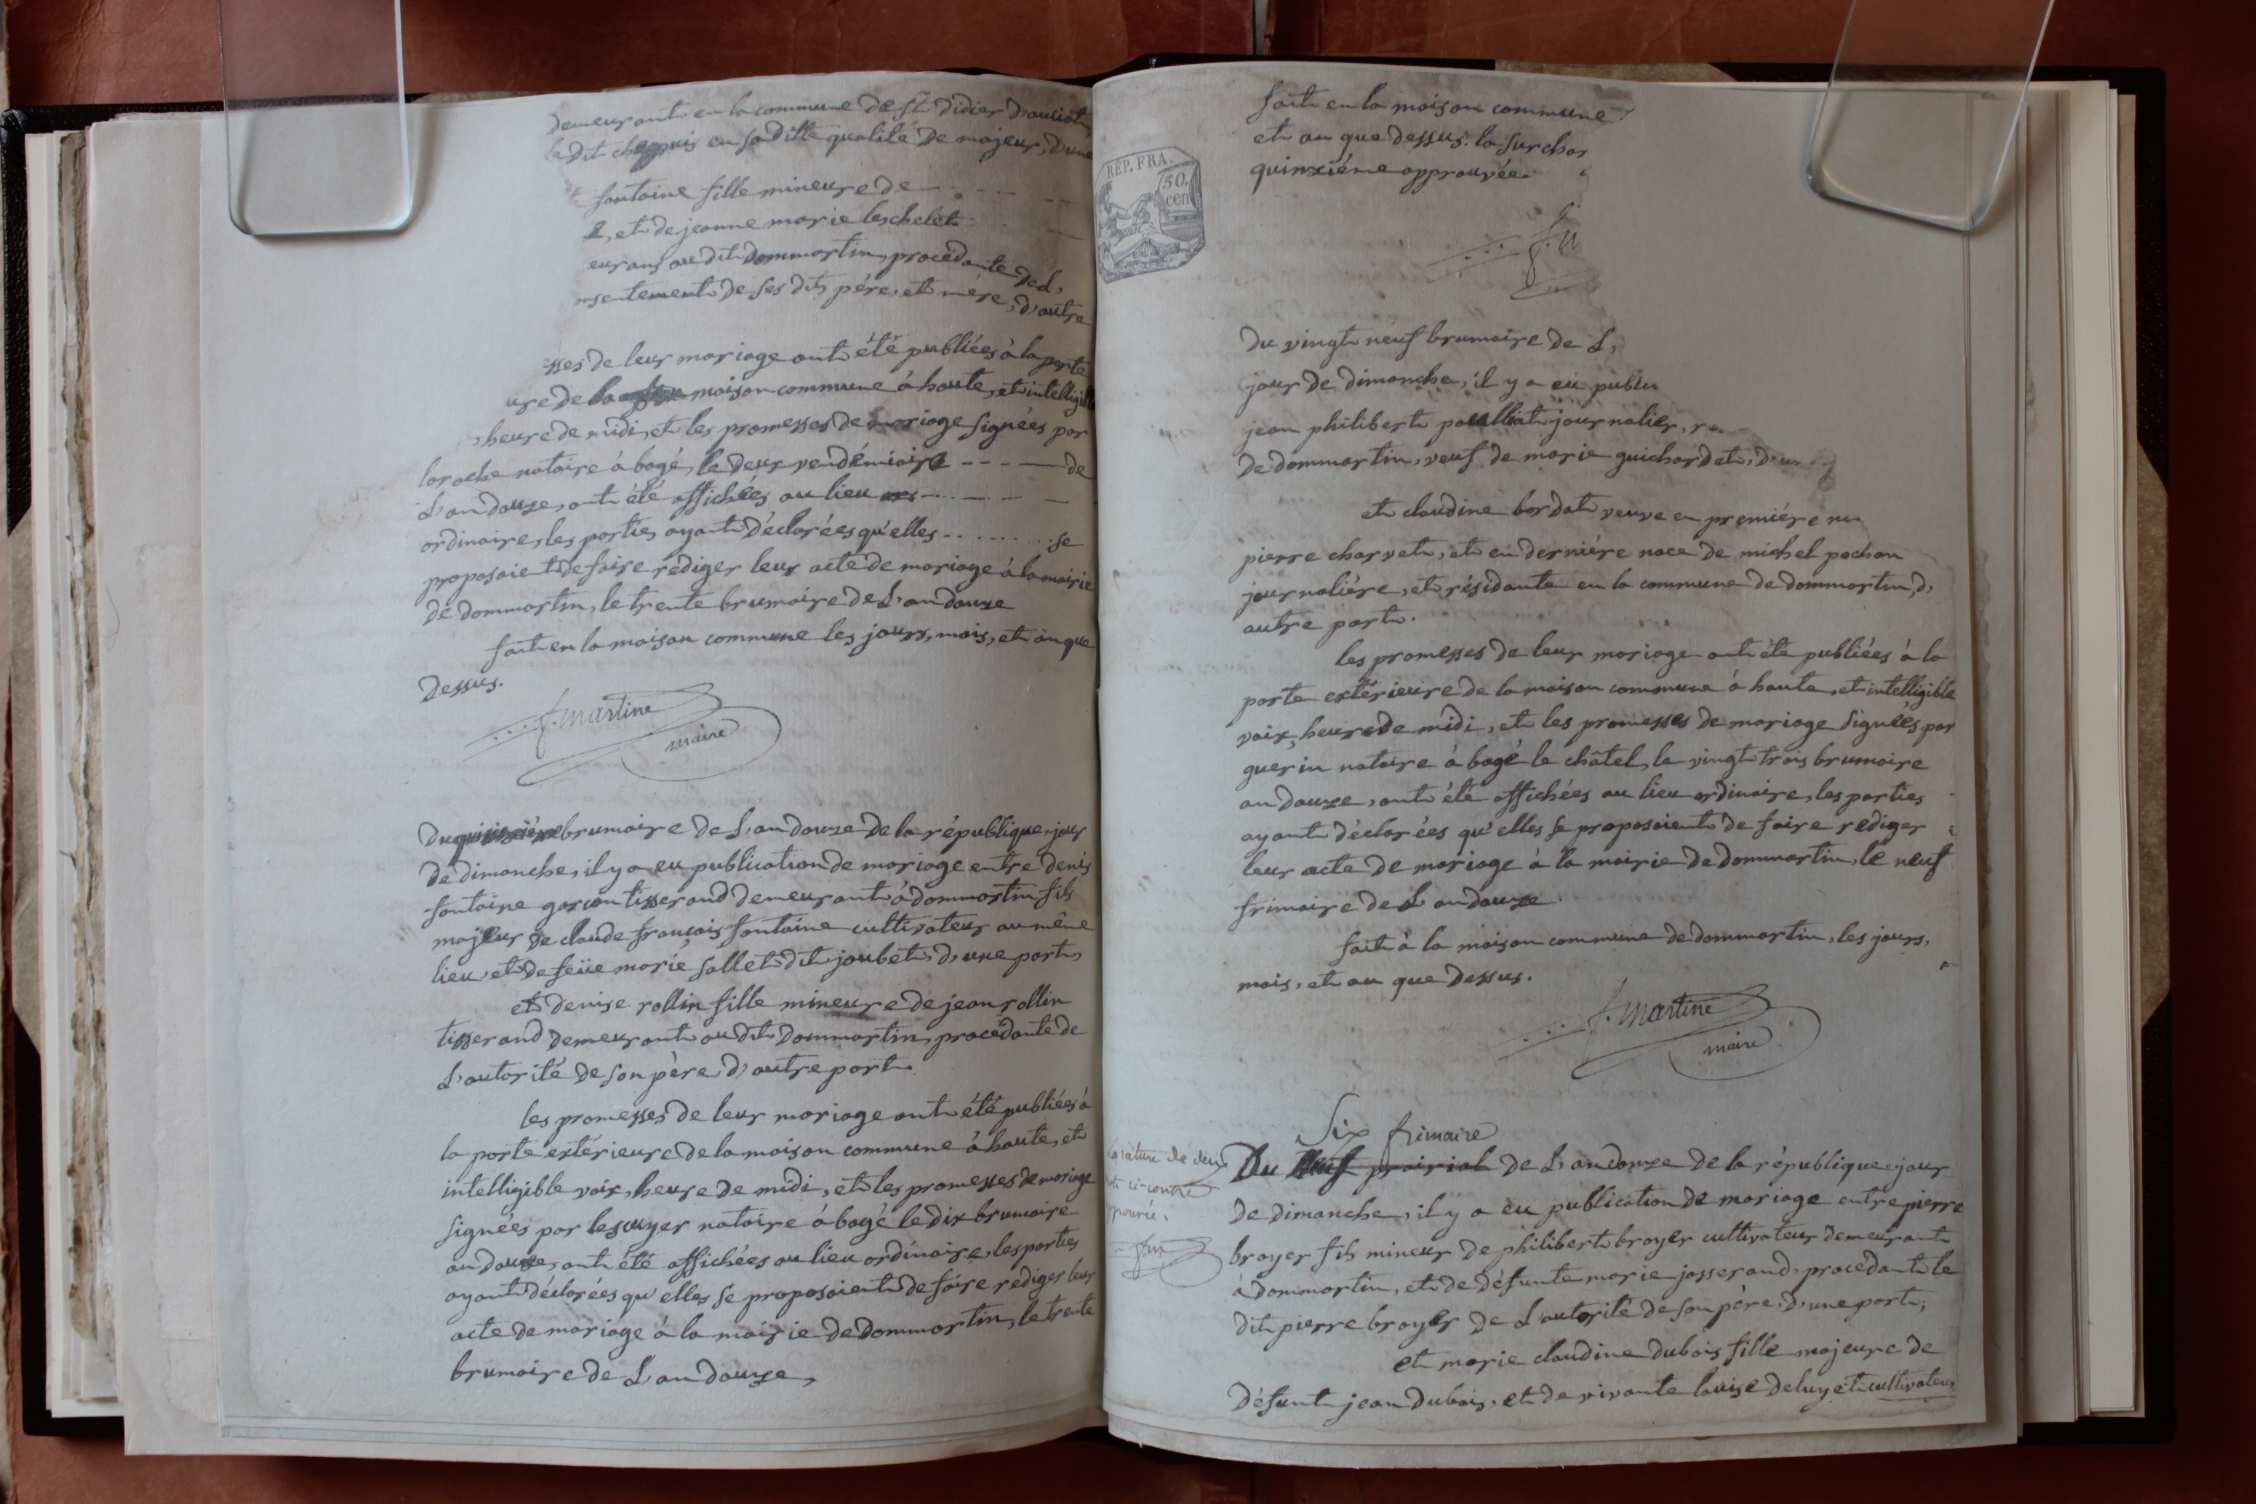 demeurant en la commune de St didier d'aussiat
le dit chapuis en sa ditte qualité de majeur, d'une
fontaine fille mineure de
et de jeanne marie leschelet
eurans au dit dommartin, procédante de L,
nsentement de ses dits père, et mère, d'autre
sses de leur mariage ont été publiées à la porte
ure de la maison commune à haute, et intelligible
heure de midi, et les promesses de mariage signées par
laroche notaire à bagé, le deux vendémiaire - - - de
L'an douze, ont été affichées au lieu
ordinaire, les parties ayant déclarées qu'elles . . . . . se
proposoient de faire rédiger leur acte de mariage à la mairie
de dommartin, le trente brumaire de L'an douze
fait en la maison commune les jours, mois, et an que
dessus.
f. martine
maire
Du quinzième brumaire de L'an douze de la république, jour
de dimanche, il y a eu publication de mariage entre denis
fontaine garçon tisserand demeurant à dommartin fils
majeur de claude françois fontaine cultivateur au même
lieu, et de feüe marie sallet dit joubet, d'une part,
et denise rollin fille mineure de jean rollin
tisserand demeurant au dit dommartin, procédante de
L'autorité de son père, d'autre part.
les promesses de leur mariage ont été publiées à
la porte extérieure de la maison commune à haute, et
intelligible voix, heure de midi, et les promesses de mariage
signées par lescuyer notaire à bagé le dix brumaire
an douze, ont été affichées au lieu ordinaire, les parties
ayant déclarées qu'elles se proposoient de faire rédiger leur
acte de mariage à la mairie de dommartin, le trente
brumaire de L'an douze,
REP. FRA.
50.
cen
fait en la maison commune
et an que dessus. la surchar
quinzième approuvée.
f.
du vingt neuf brumaire de L,
jour de dimanche, il y a eü public
jean philibert poulliat journalier, r
de dommartin, veuf de marie guichardet, d'un
et claudine bordat veuve en première
pierre charvet, et en dernière noce de michel pochon
journalière, et résidante en la commune de dommartin, d,
autre part.
les promesses de leur mariage ont été publiées à la
porte extérieure de la maison commune à haute, et intelligible
voix, heure de midi, et les promesses de mariage signées par
guerin notaire à bagé le châtel, le vingt trois brumaire
an douze, ont été affichées au lieu ordinaire, les parties
ayant déclarées qu'elles se proposoient de faire rediger
leur acte de mariage à la mairie de dommartin, le neuf
frimaire de L'an douze
fait à la maison commune de dommartin, les jours,
mois, et an que dessus.
f. martine
maire
Six frimaire
la rature de deux
ci-contre
Du neuf prairial de L'an douze de la république, jour
de dimanche, il y a eu publication de mariage entre pierre
broyer fils mineur de philibert broyer cultivateur demeurant
à dommartin, et de défunte marie josserand, procédant le
dit pierre broyer de L'autorité de son père, d'une part,
et marie claudine dubois fille majeure de
défunt jean dubois, et de vivante louise deluyet cultivateur